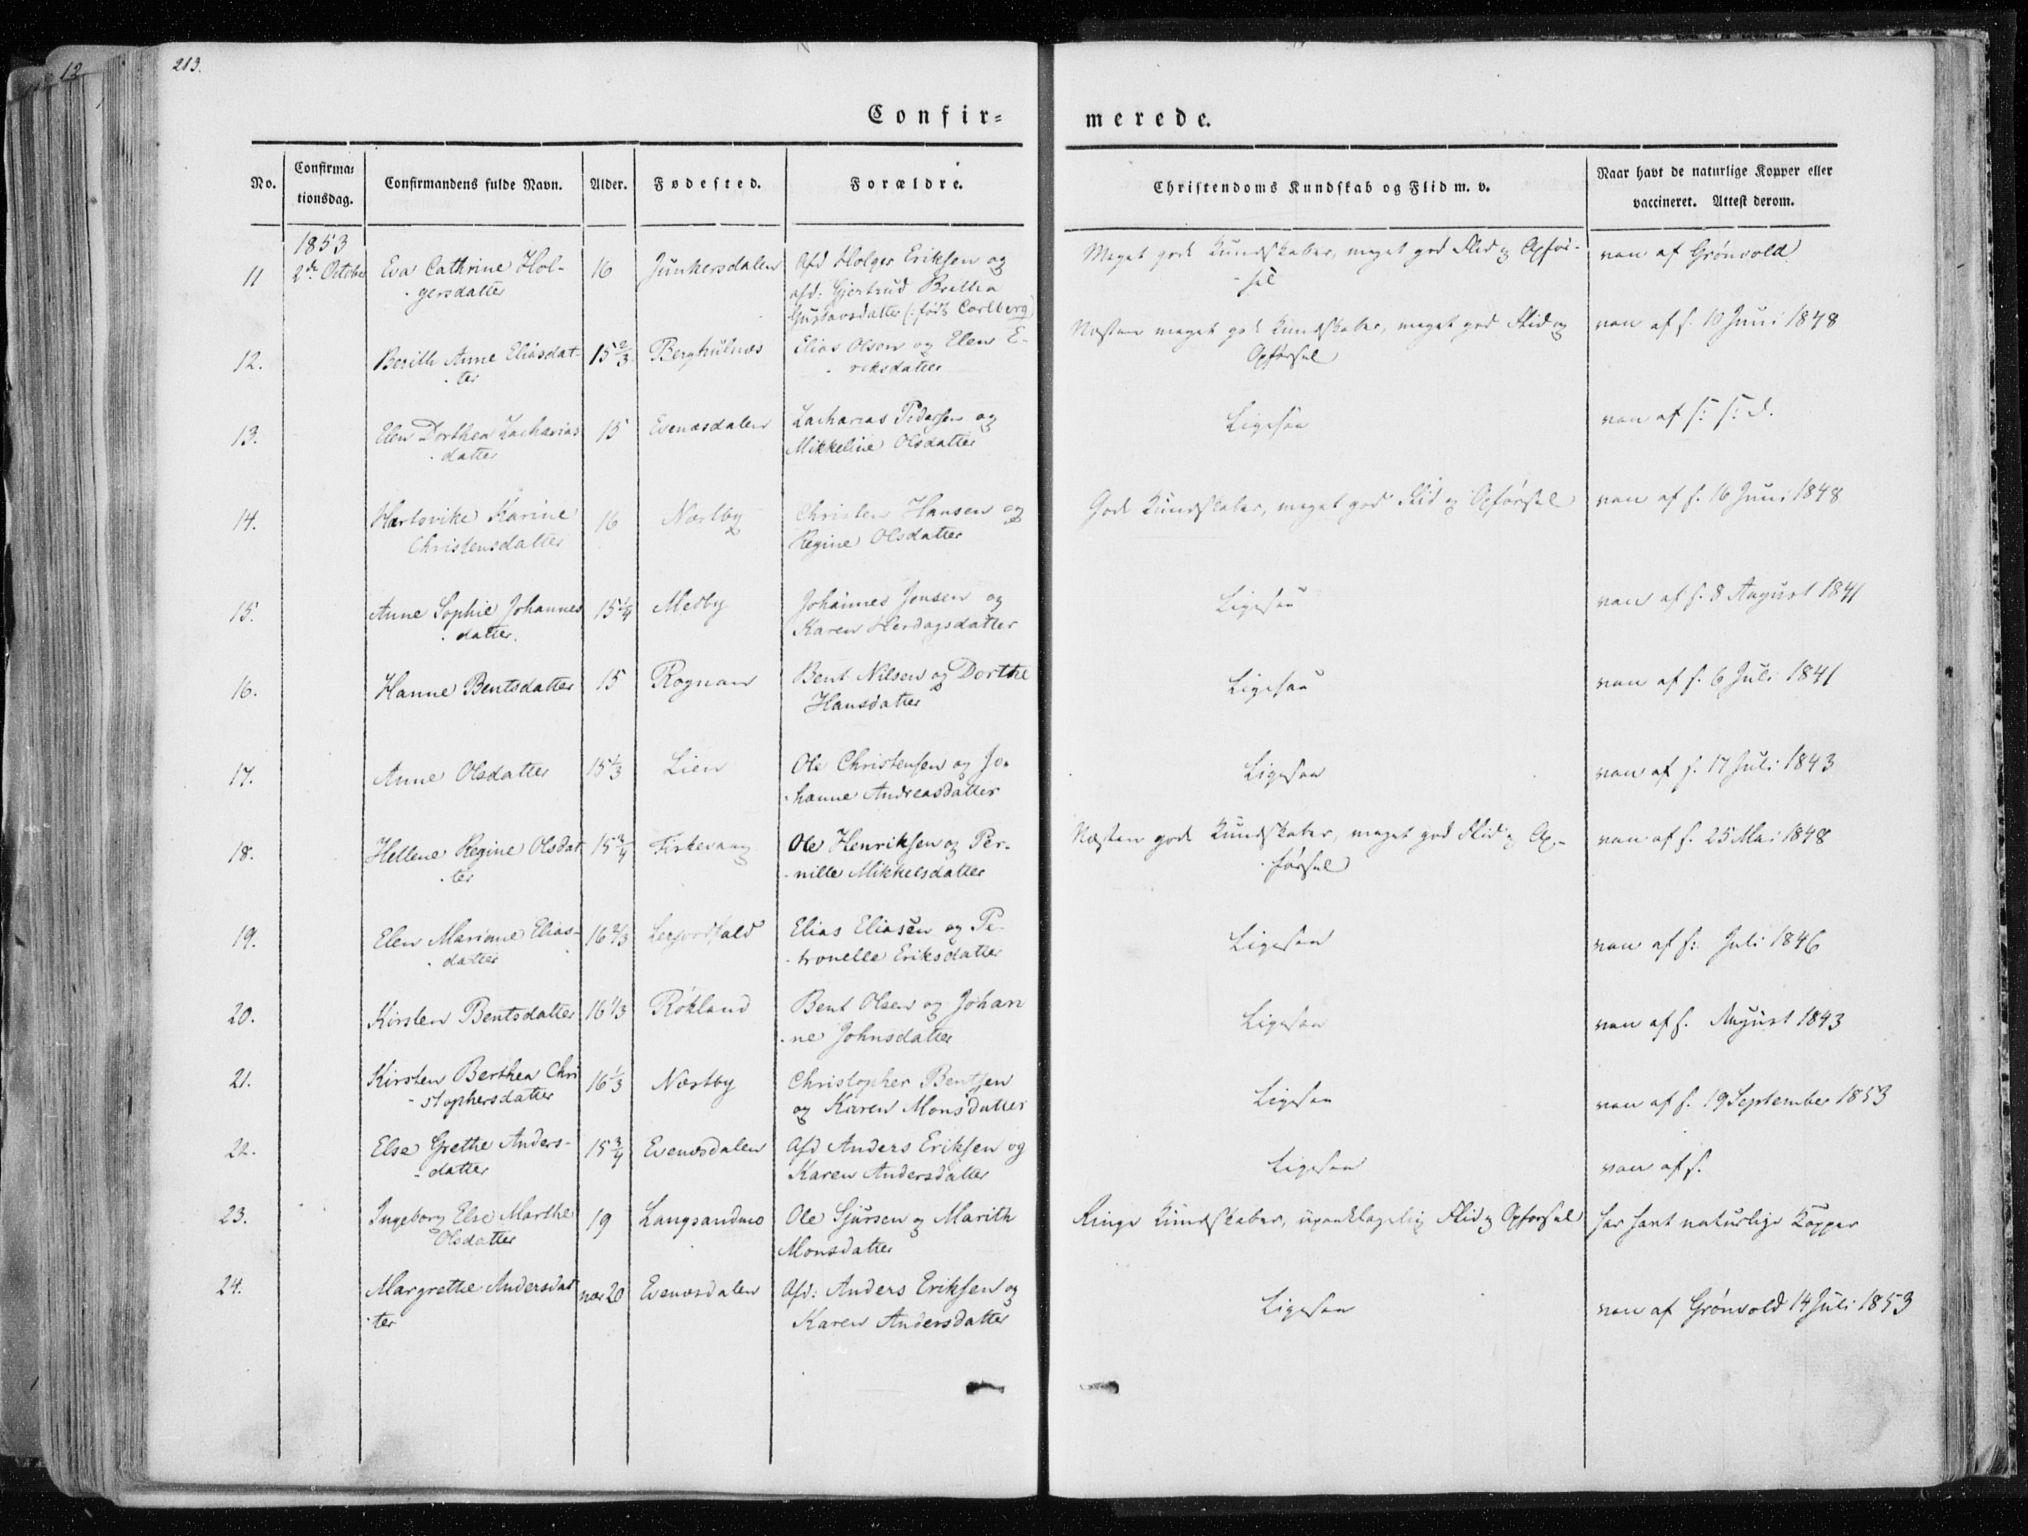 213.
12
Confir=
merede.
No.
Confirma=
tionsdag.
Confirmandens fulde Navn.
Alder.
Fødested.
Forældre.
Christendoms Kundskab og Flid m. v.
Naar havt de naturlige Kopper eller
vaccineret. Attest derom.
1853
11 2de October Eva Cathrine Hol- 16 Junkersdalen Afd Holger Eriksen og Meget gode Kundskaber, meget god Flid og Opfør- vac af Grönvold
gersdatter afd: Gjertrud Brettea -sel
Gustavsdatter (: født Carlberg)
12. Berith Anne Eliasdat- 15 2/3 Berghulnæs Elias Olsen og Elen E- Næsten meget gode Kundskaber, meget god Flid og vac af s. 10 Juni 1848
ter riksdatter Opførsel
13. Elen Dorthea Zacharias 15 Evenæsdalen Zacharias Pedersen og Ligesaa vac af s: s: d.
datter Mikkeline Olsdatter
14. Hartvike Karine 16 Næstby Christen Hansen og Gode Kundskaber, meget god Flid og Opførsel vac af s. 16 Juni 1848
Christensdatter Regine Olsdatter
15. Anne Sophie Johannes 15 1/4 Medby Johannes Jensen og Ligesaa vac af s. 8 August 1841
datter. Karen Herdagsdatter
16. Hanne Bentsdatter 15 Rognan Bent Nilsen og Dorthe Ligesaa vac af s. 6 Juli 1841
Hansdatter
17. Anne Olsdatter 15 1/3 Lien Ole Christensen og Jo- Ligesaa vac af s. 17 Juli 1843
hanne Andreasdatter
18. Hellene Regine Olsdat 15 3/4 Fiskevaag Ole Henriksen og Per- Næsten gode Kundskaber, meget god Flid og Op- vac af s. 25 Mai 1848
ter nille Mikkelsdatter førsel
19. Elen Mariane Elias- 16 2/3 Elias Eliasen og Pe- Ligesaa vac af s: Juli 1846
datter tronelle Eriksdatter
20. Kirsten Bentsdatter 16 1/3 Røkland Bent Olsen og Johan Ligesaa vac af s. August 1843
ne Johnsdatter
21. Kirsten Berthea Chri 16 1/3 Næstby Christopher Bentsen Ligesaa vac af s. 19 September 1853
stophersdatter og Karen Monsdatter
22. Else Grethe Anders- 15 3/4 Evenæsdalen Afd Anders Eriksen og Ligesaa vac af s.
datter Karen Andersdatter
23. Ingeborg Else Marthe 19 Langsandmo Ole Sjursen og Marith Ringe Kundskaber, upaaklagelig Flid og Opførsel har havt naturlige Kopper
Olsdatter Monsdatter
24. Margrethe Andersdat nær 20 Evenæsdalen Afd: Anders Eriksen og Ligesaa vac af Grönvold 14 Juli 1853
ter Karen Andersdatter